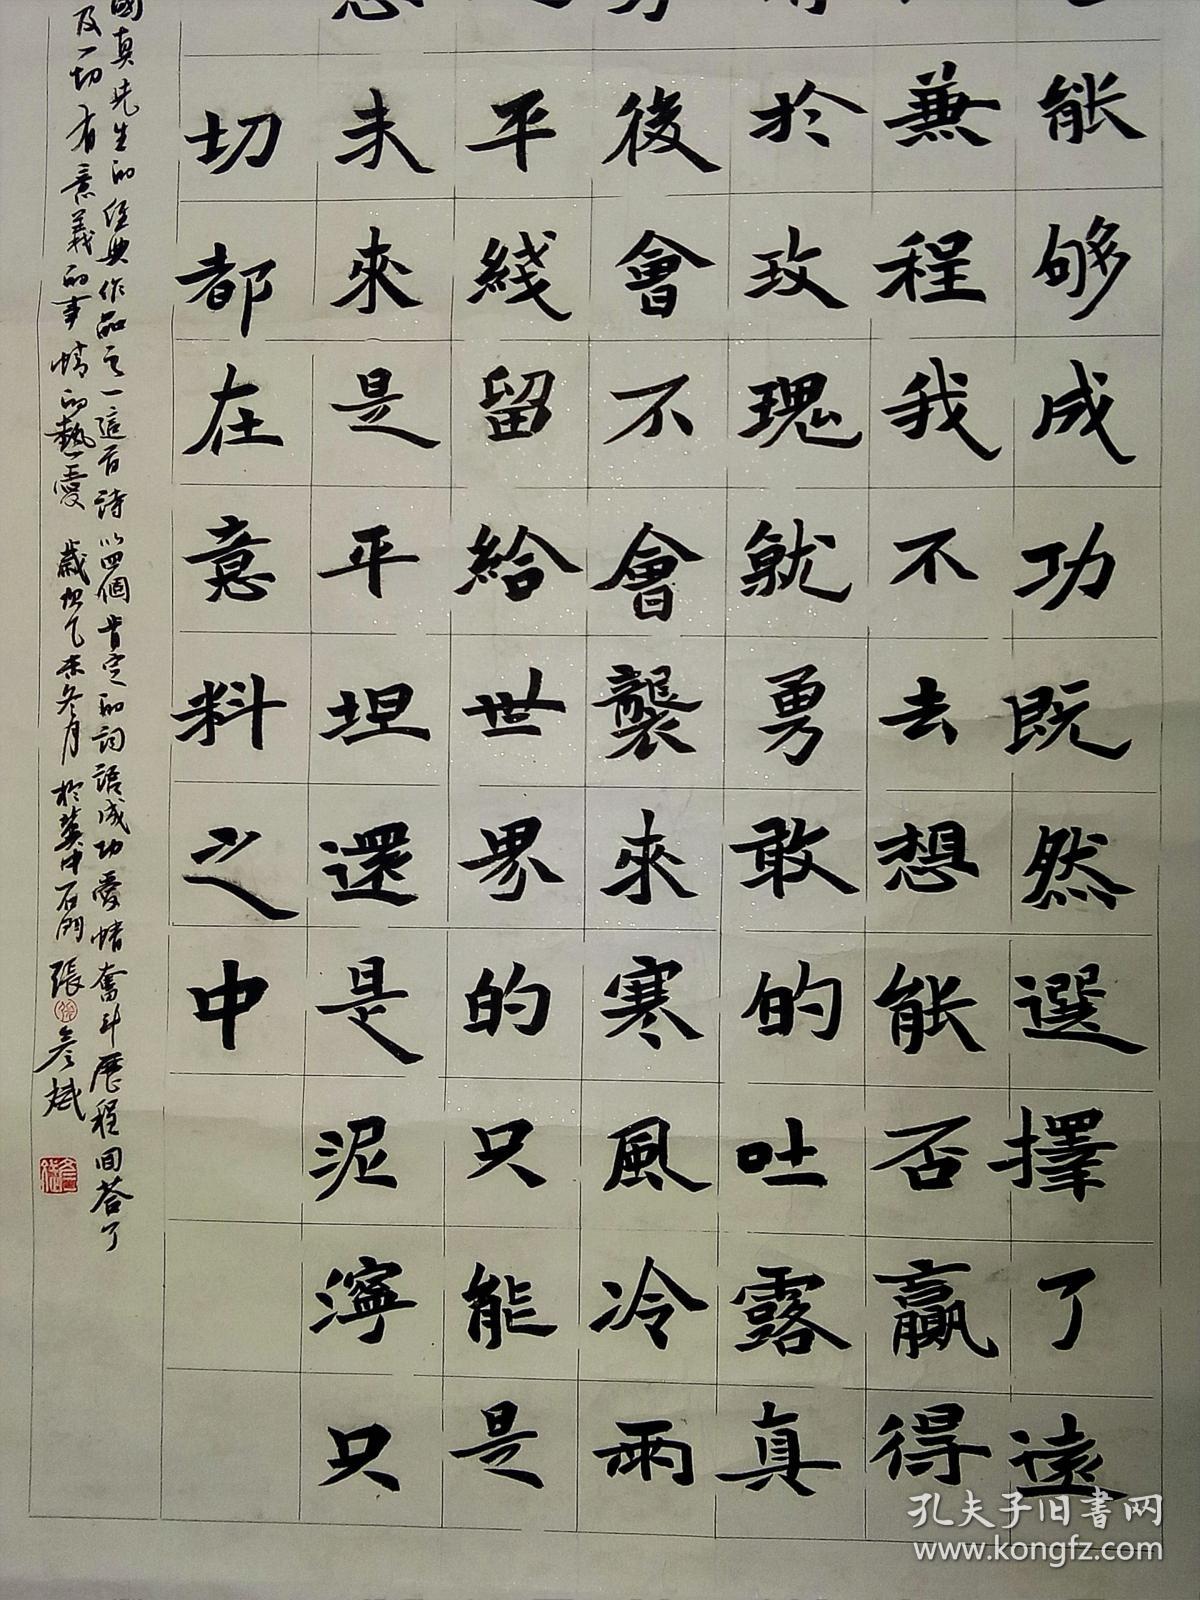 能够成功既然選擇了遠
兼程我不去想能否贏得
於玫瑰就勇敢的吐露真
後會不會襲來寒風冷雨
平綫留給世界的只能是
未來是平坦還是泥濘只
切都在意料之中
國真先生的經典作品之一這首詩以四個肯定的詞語成功愛情奮斗歷程回答了
及一切有意義的事情的熱愛 歲次乙未冬月於冀中石門 張彦斌
孔夫子旧书网
www.kongfz.com